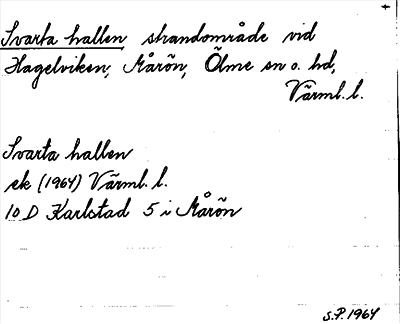 Svarta hallen strandområde vid
Hagelviken, Mårön, Ölme sn o. hd,
Värml. l.
Svarta hallen
ek (1964) Värml. l.
10 D Karlstad 5 i Mårön
S.P. 1964